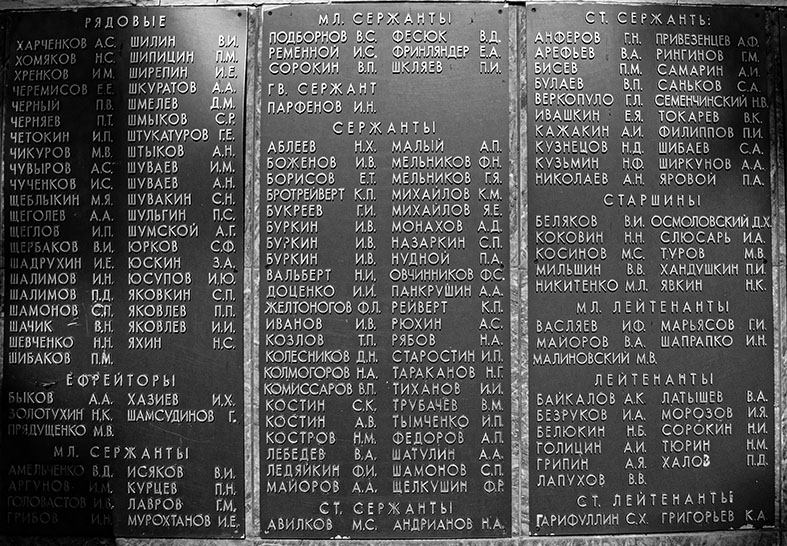 РЯДОВЫЕ
ХАРЧЕНКОВ А.С. ШИЛИН В.И.
ХОМЯКОВ Н.С. ШИПИЦИН П.М.
ХРЕНКОВ И.М. ШИРЕПИН И.Е.
ЧЕРЕМИСОВ Е.Е. ШКУРАТОВ А.А.
ЧЕРНЫЙ П.В. ШМЕЛЕВ Д.М.
ЧЕРНЯЕВ П.Т. ШМЫКОВ С.Р.
ЧЕТОКИН И.П. ШТУКАТУРОВ Г.Е.
ЧИКУРОВ М.В. ШТЫКОВ А.Н.
ЧУВЫРОВ А.С. ШУВАЕВ И.М.
ЧУЧЕНКОВ И.С. ШУВАЕВ А.Н.
ЩЕБЛЫКИН М.Я. ШУВАКИН С.Н.
ЩЕГОЛЕВ А.А. ШУЛЬГИН П.С.
ЩЕГЛОВ И.П. ШУМСКОЙ А.Г.
ЩЕРБАКОВ В.И. ЮРКОВ С.Ф.
ШАДРУХИН И.Е. ЮСКИН З.А.
ШАЛИМОВ И.Н. ЮСУПОВ И.Ю.
ШАЛИМОВ П.Д. ЯКОВКИН С.П.
ШАМОНОВ С.П. ЯКОВЛЕВ П.П.
ШАЧИК В.Н. ЯКОВЛЕВ И.И.
ШЕВЧЕНКО Н.Н. ЯХИН Н.С.
ШИБАКОВ П.М.
ЕФРЕЙТОРЫ
БЫКОВ А.А. ХАЗИЕВ И.Х.
ЗОЛОТУХИН Н.К. ШАМСУДИНОВ Г.
ПРЯДУЩЕНКО М.В.
МЛ. СЕРЖАНТЫ
АМЕЛЬЧЕНКО В.Д. ИСЯКОВ В.И.
АРГУНОВ И.М. КУРЦЕВ П.Н.
ГОЛОВАСТОВ И.В. ЛАВРОВ Г.М.
ГРИБОВ И.Н. МУРОХТАНОВ И.Е.
МЛ. СЕРЖАНТЫ
ПОДБОРНОВ В.С. ФЕСЮК В.Д.
РЕМЕННОЙ И.С. ФРИНЛЯНДЕР Е.А.
СОРОКИН В.П. ШКЛЯЕВ П.И.
ГВ. СЕРЖАНТ
ПАРФЕНОВ И.Н.
СЕРЖАНТЫ
АБЛЕЕВ Н.Х. МАЛЫЙ А.П.
БОЖЕНОВ И.В. МЕЛЬНИКОВ Ф.Н.
БОРИСОВ Е.Т. МЕЛЬНИКОВ Г.Я.
БРОТРЕЙВЕРТ К.П. МИХАЙЛОВ К.М.
БУКРЕЕВ Г.И. МИХАЙЛОВ Я.Е.
БУРКИН И.В. МОНАХОВ А.Д.
БУРКИН И.В. НАЗАРКИН С.П.
БУРКИН И.В. НУДНОЙ П.А.
ВАЛЬБЕРТ Н.И. ОВЧИННИКОВ Ф.С.
ДОЦЕНКО И.И. ПАНКРУШИН А.А.
ЖЕЛТОНОГОВ Ф.Л. РЕЙВЕРТ К.П.
ИВАНОВ И.В. РЮХИН А.С.
КОЗЛОВ Т.П. РЯБОВ Н.А.
КОЛЕСНИКОВ Д.Н. СТАРОСТИН И.П.
КОЛМОГОРОВ Н.А. ТАРАКАНОВ Н.Г.
КОМИССАРОВ В.П. ТИХАНОВ И.И.
КОСТИН С.К. ТРУБАЧЕВ В.М.
КОСТИН А.В. ТЫМЧЕНКО И.П.
КОСТРОВ Н.М. ФЕДОРОВ А.П.
ЛЕБЕДЕВ В.А. ШАТУЛИН А.А.
ЛЕДЯЙКИН Ф.И. ШАМОНОВ С.П.
МАЙОРОВ А.А. ЩЕЛКУШИН Ф.Р.
СТ. СЕРЖАНТЫ
АВИЛКОВ М.С. АНДРИАНОВ Н.А.
СТ. СЕРЖАНТЫ
АНФЕРОВ Г.Н. ПРИВЕЗЕНЦЕВ А.Ф.
АРЕФЬЕВ В.А. РИНГИНОВ Г.М.
БИСЕВ П.М. САМАРИН А.И.
БУЛАЕВ В.П. САНЬКОВ С.А.
ВЕРКОПУЛО Г.Л. СЕМЕНЧИНСКИЙ Н.В.
ИВАШКИН Е.Я. ТОКАРЕВ В.К.
КАЖАКИН А.И. ФИЛИППОВ П.И.
КУЗНЕЦОВ Н.Д. ШИБАЕВ С.А.
КУЗЬМИН Н.Ф. ШИРКУНОВ А.А.
НИКОЛАЕВ А.Н. ЯРОВОЙ П.А.
СТАРШИНЫ
БЕЛЯКОВ В.И. ОСМОЛОВСКИЙ Д.Х.
КОКОВИН Н.Н. СЛЮСАРЬ И.А.
КОСИНОВ М.С. ТУРОВ М.В.
МИЛЬШИН В.В. ХАНДУШКИН П.И.
НИКИТЕНКО М.Л. ЯВКИН Н.К.
МЛ. ЛЕЙТЕНАНТЫ
ВАСЛЯЕВ И.Ф. МАРЬЯСОВ Г.И.
МАЙОРОВ В.А. ШАПРАПКО И.Н.
МАЛИНОВСКИЙ М.В.
ЛЕЙТЕНАНТЫ
БАЙКАЛОВ А.К. ЛАТЫШЕВ В.А.
БЕЗРУКОВ И.А. МОРОЗОВ И.Я.
БЕЛЮКИН Н.Б. СОРОКИН Н.И.
ГОЛИЦИН А.И. ТЮРИН Н.М.
ГРИПИН А.Я. ХАЛОВ П.Д.
ЛАПУХОВ В.В.
СТ. ЛЕЙТЕНАНТЫ
ГАРИФУЛЛИН С.Х. ГРИГОРЬЕВ К.А.